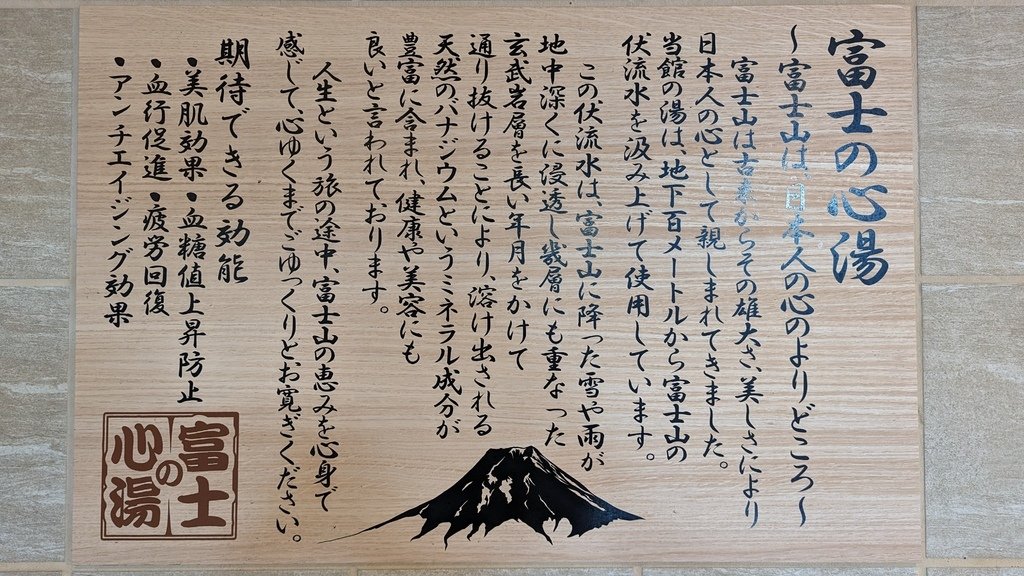 富士の心湯
～富士山は、日本人の心のよりどころ～
富士山は古来からその雄大さ、美しさにより
日本人の心として親しまれてきました。
当館の湯は、地下百メートルから富士山の
伏流水を汲み上げて使用しています。
この伏流水は、富士山に降った雪や雨が
地中深くに浸透し幾層にも重なった
玄武岩層を長い年月をかけて
通り抜けることにより、溶け出される
天然のバナジウムというミネラル成分が
豊富に含まれ、健康や美容にも
良いと言われております。
人生という旅の途中、富士山の恵みを心身で
感じて、心ゆくまでごゆっくりとお寛ぎください。
期待できる効能
・美肌効果・血糖値上昇防止
・血行促進・疲労回復
・アンチエイジング効果
富士の心湯